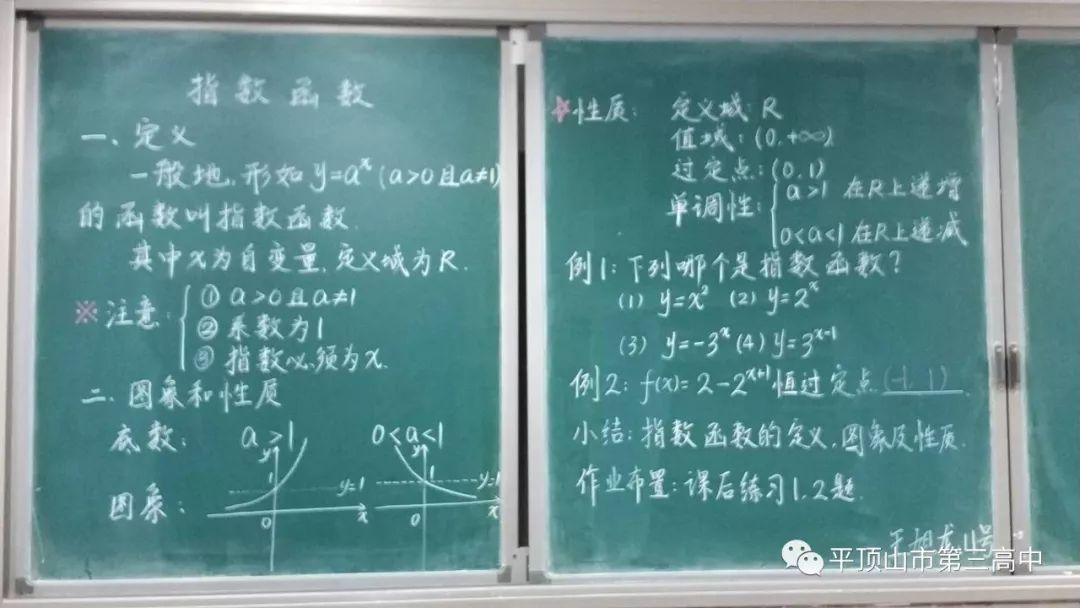 指数函数
一、定义
一般地，形如 y=aˣ (a>0且a≠1)
的函数叫指数函数.
其中x为自变量，定义域为R.
※注意：
① a>0且a≠1
② 系数为1
③ 指数必须为x.
二、图象和性质
底数： a>1 0<a<1
图象：
y 1 y=1 0 x
y 1 y=1 0 x
☆性质： 定义域：R
值域：(0,+∞)
过定点：(0,1)
单调性：
a>1 在R上递增
0<a<1 在R上递减
例1：下列哪个是指数函数？
(1) y=x² (2) y=2ˣ
(3) y=-3ˣ (4) y=3ˣ⁻¹
例2：f(x)=2-2ˣ⁺¹恒过定点(-1,1).
小结：指数函数的定义，图象及性质.
作业布置：课后练习1.2题.
11号
平顶山市第三高中